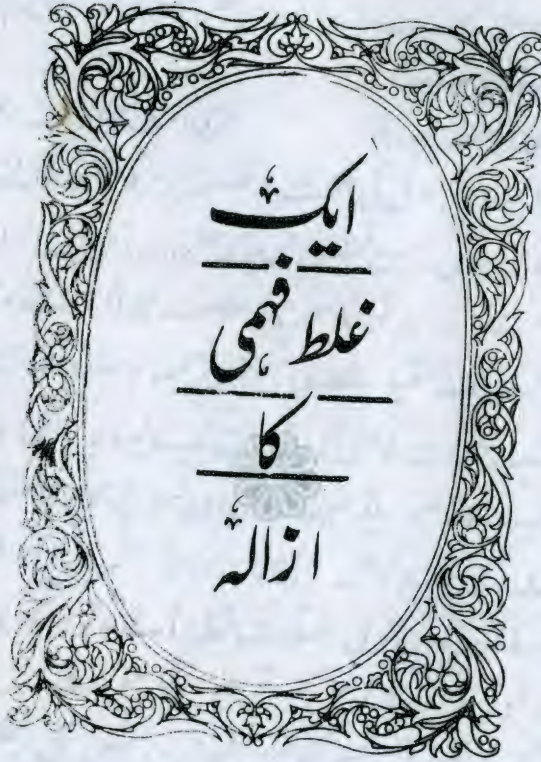 ایک
غلط فہمی
کا
ازالہ